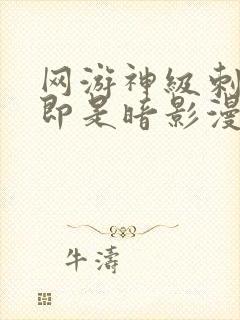 网游神级刺
即是暗影漫
牛濤